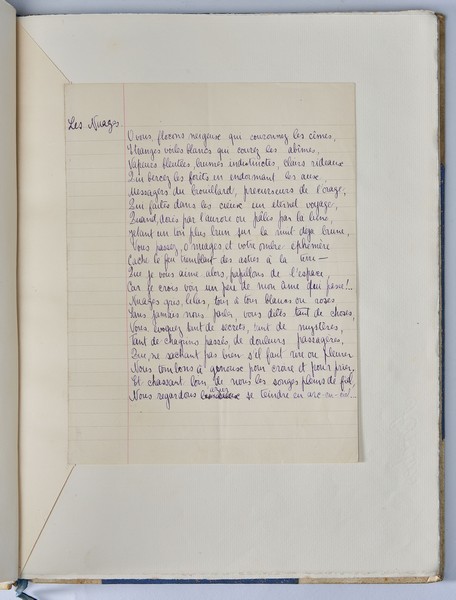 Les Nuages.
O vous, flocons neigeux qui couronnez les cimes,
Etranges voiles blancs qui courez les abîmes,
Vapeurs bleutées, brumes indistinctes, clairs rideaux
Qui bercez les forêts en endormant les
Messagers du brouillard, precurseurs de l'orage,
Qui faites dans les cieux un eternel voyage,
Quand, dorés par l'aurore ou pâles par la lune,
Jetant un ton plus brun sur la nuit déjà brune,
Vous passez, o nuages et votre ombre ephémère
Cache le feu tremblant des astres à la terre —
Que je vous aime alors, papillons de l'espace,
Car je crois voir un peu de mon âme qui passe!..
Nuages gris, lilas, tour à tour blancs ou roses
Sans jamais nous parler, vous dites tant de choses,
Vous evoquez tant de secrets, tant de mystères,
Tant de chagrins passés, de douleurs passagères,
Que, ne sachant pas bien s'il faut rire ou pleurer
Nous tombons à genoux pour croire et pour prier,
Et chassant loin de nous les songes pleins de fiel,
Nous regardons se teindre en arc-en-ciel..